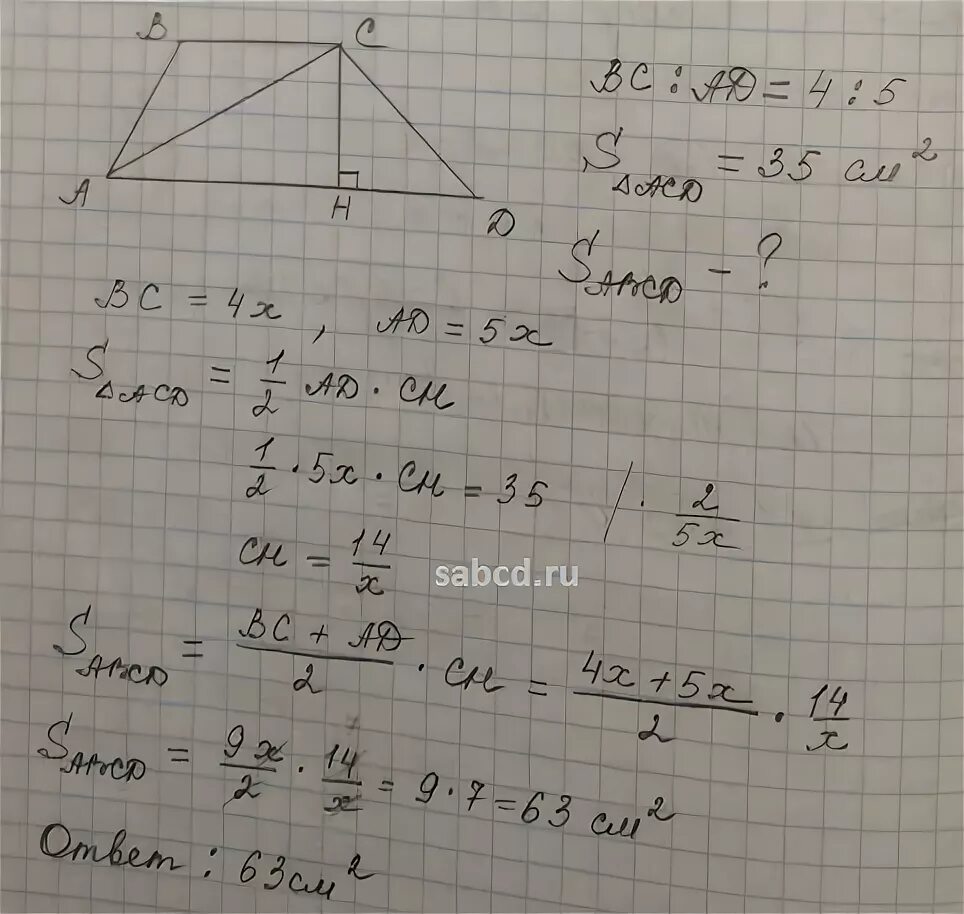 B C
A H D
BC : AD = 4 : 5
S△ACD = 35 см²
SABCD - ?
BC = 4x , AD = 5x
S△ACD = 1/2 AD · CH
1/2 · 5x · CH = 35 / · 2/5x
CH = 14/x
sabcd.ru
SABCD = (BC + AD)/2 · CH = (4x + 5x)/2 · 14/x
SABCD = 9x/2 · 14/x = 9 · 7 = 63 см²
7
Ответ : 63 см²